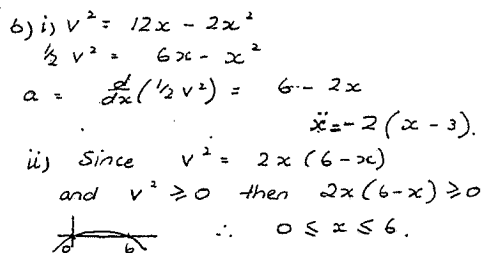 b) i) v² = 12x - 2x²
½ v² = 6x - x²
a = d/dx (½ v²) = 6 - 2x
ẍ = -2(x - 3).
ii) Since v² = 2x(6-x)
and v² ≥ 0 then 2x(6-x) ≥ 0
∴ 0 ≤ x ≤ 6.
0 6